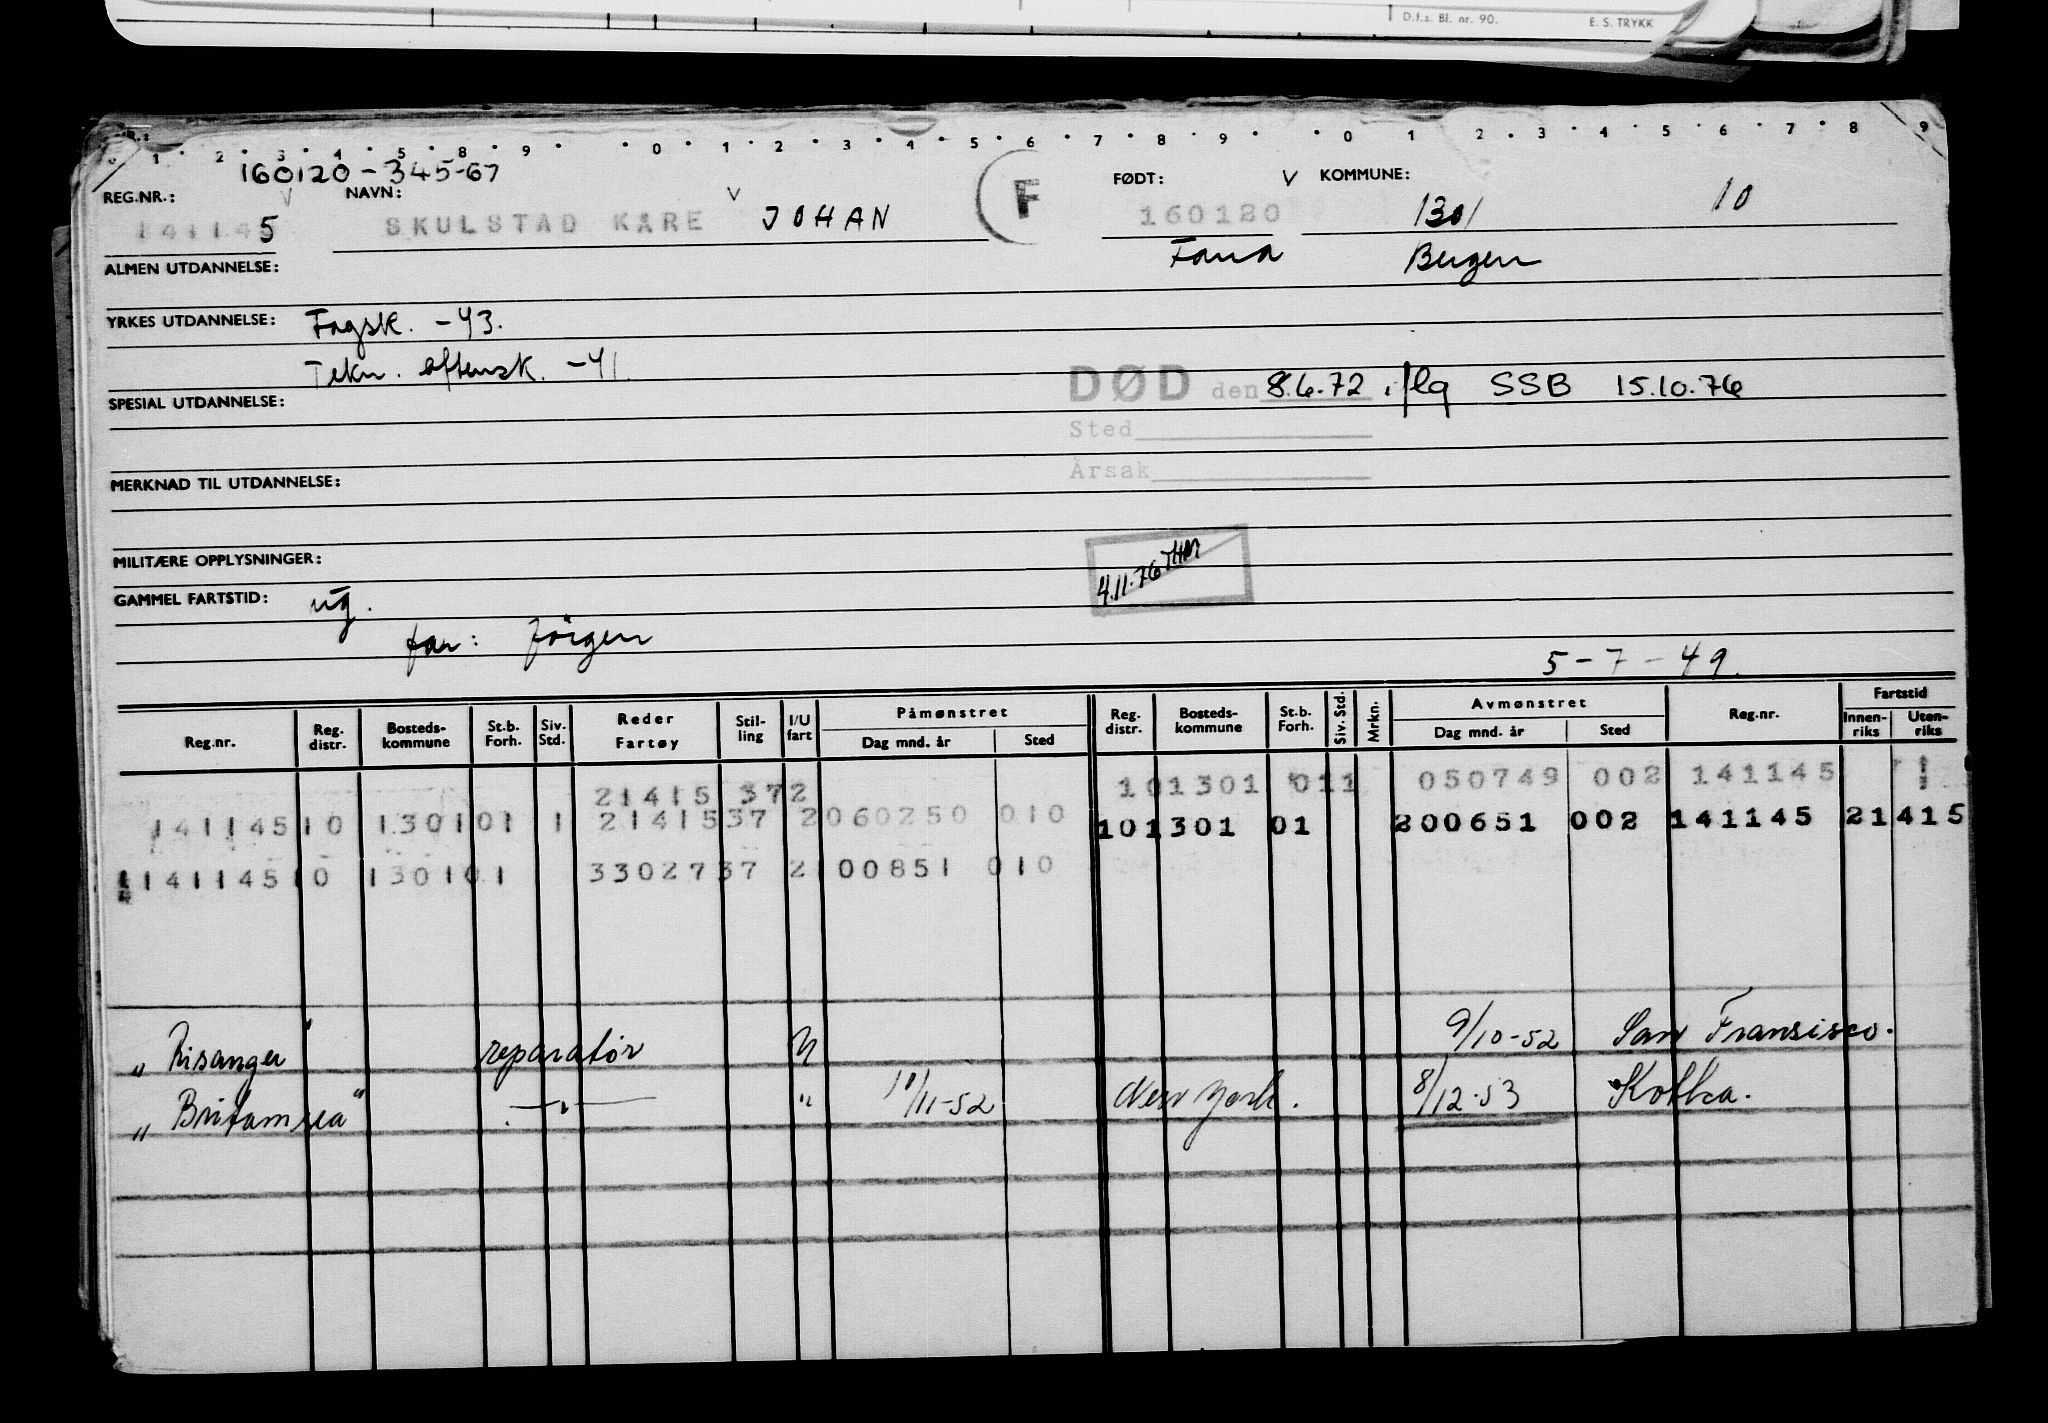 D.f.s. Bl. nr. 90. E. S. TRYKK
1 · 2 · 3 · 4 · 5 · 8 · 9 · · 0 · 1 · 2 · 3 · 4 · 5 · 6 · 7 · 8 · 9 · · 0 · 1 · 2 · 3 · 4 · 5 · 6 · 7 · 8 · 9
160120-345-67
REG.NR.: NAVN: FØDT: KOMMUNE:
141145 SKULSTAD KARE JOHAN F 160120 1301 10
Fana Bergen
ALMEN UTDANNELSE:
YRKES UTDANNELSE: Fagsk. -43.
Tekn. aftensk. -41.
DØD den 8.6.72 iflg SSB 15.10.76
SPESIAL UTDANNELSE:
Sted
Årsak
MERKNAD TIL UTDANNELSE:
MILITÆRE OPPLYSNINGER:
4.11.76 THM
GAMMEL FARTSTID: ug.
far: Jörgen
5-7-49.
Reg.nr. Reg. distr. Bosteds-kommune St.b. Forh. Siv. Std. Reder Fartøy Stil-ling I/U fart Påmønstret Dag mnd. år Sted Reg. distr. Bosteds-kommune St.b. Forh. Siv. Std. Mrkn. Avmønstret Dag mnd. år Sted Reg.nr. Fartstid Innen-riks Uten-riks
21415 372 101301 011 050749 002 141145
141145 10 1301 01 1 21415 37 2 060250 010 101301 01 200651 002 141145 21415
141145 10 1301 01 33027 37 2 100851 010
„Risanger" reparatør U 9/10-52 San Fransisco.
„Britamsea" —„— " 10/11-52 New York. 8/12-53 Kotka.